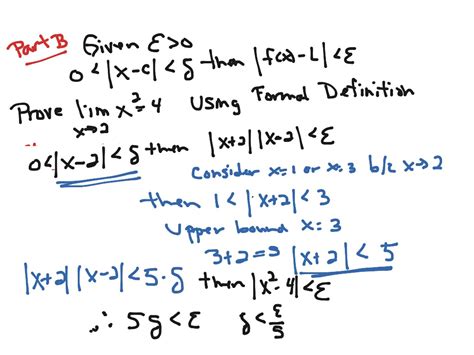 Part B Given ε>0
0<|x-c|<δ then |f(x)-L|<ε
Prove lim x²=4 Using Formal Definition
x→2
0<|x-2|<δ then |x+2||x-2|<ε
Consider x=1 or x=3 b/c x→2
then 1<|x+2|<3
Upper bound x=3
3+2=5 |x+2|<5
|x+2||x-2|<5·δ then |x²-4|<ε
∴ 5δ<ε δ<ε/5